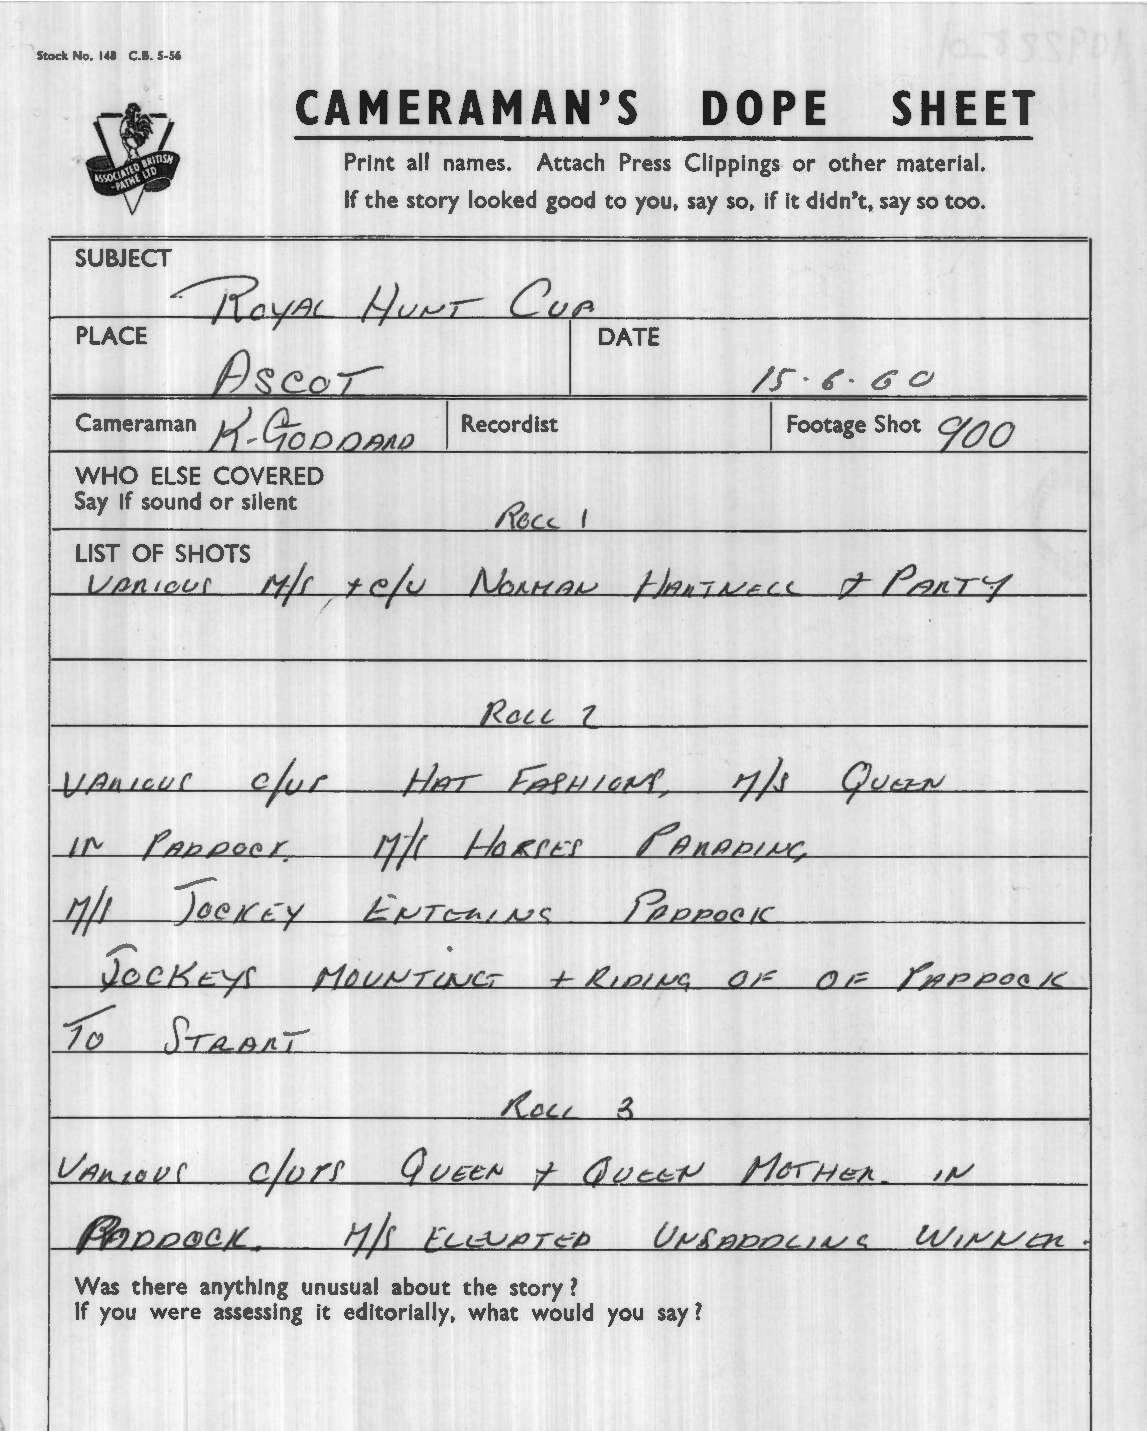 Stock No. 148 C.B. 5-56
CAMERAMAN'S DOPE SHEET
ASSOCIATED BRITISH
-PATHE LTD
Print all names. Attach Press Clippings or other material.
If the story looked good to you, say so, if it didn't, say so too.
SUBJECT
ROYAL HUNT CUP
PLACE
DATE
ASCOT
15.6.60
Cameraman K. GODDARD Recordist Footage Shot 900
WHO ELSE COVERED
Say if sound or silent
ROLL 1
LIST OF SHOTS
VARIOUS M/S + C/U NORMAN HARTNELL + PARTY
ROLL 2
VARIOUS C/US HAT FASHIONS, M/S QUEEN
IN PADDOCK. M/S HORSES PARADING
M/S JOCKEY ENTERING PADDOCK
JOCKEYS MOUNTING + RIDING OF OF PADDOCK
TO STRART
ROLL 3
VARIOUS C/UYS QUEEN + QUEEN MOTHER. IN
PADDOCK. M/S ELEVATED UNSADDLING WINNER.
Was there anything unusual about the story?
If you were assessing it editorially, what would you say?